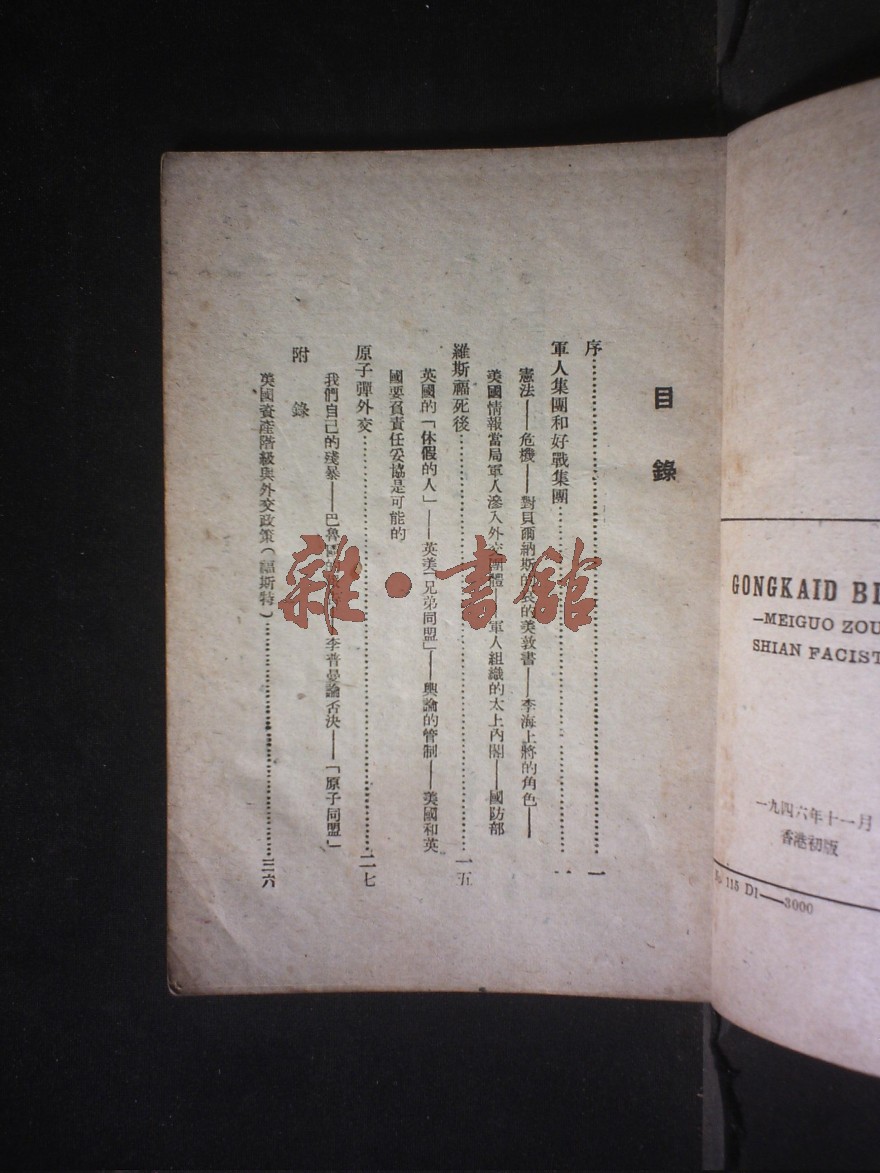 目錄
序……一
軍人集團和好戰集團……
憲法——危機——對貝爾納斯的哀的美敦書——李海上將的角色——
美國情報當局軍人滲入外交團體——軍人組織的太上內閣——國防部
維斯福死後……一五
英國的「休假的人」——英美「兄弟同盟」——輿論的管制——美國和英
國要負責任妥協是可能的
原子彈外交……二七
我們自己的殘暴——巴魯區的——李普曼論否決——「原子同盟」
附錄
英國資產階級與外交政策(福斯特)……三六
雜·書館
GONGKAID BI
—MEIGUO ZOU
SHIAN FACIST
一九四六年十一月
香港初版
115 DI—3000